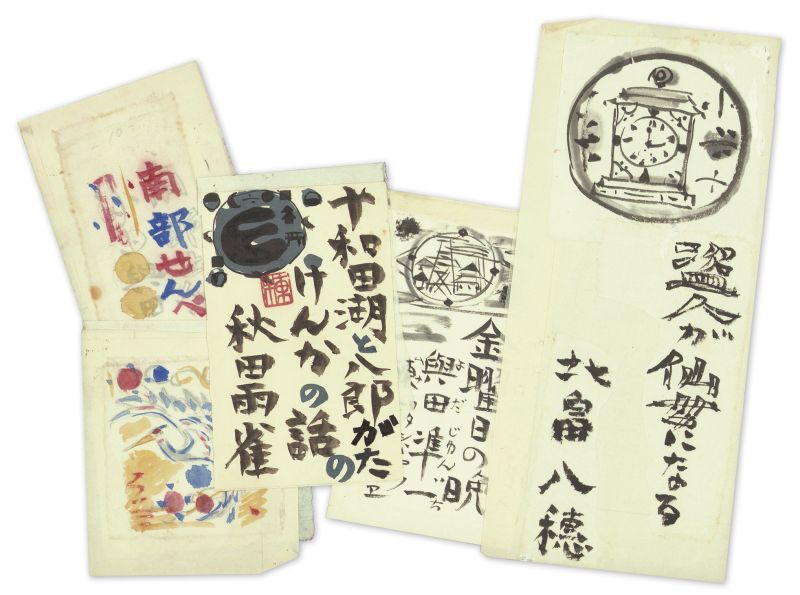 盗人が
になる
北畠八穂
金曜日の晩
與田凖一
よだじゅん
十和田湖と八郎がたの
けんかの話
秋田雨雀
南
部せんべ